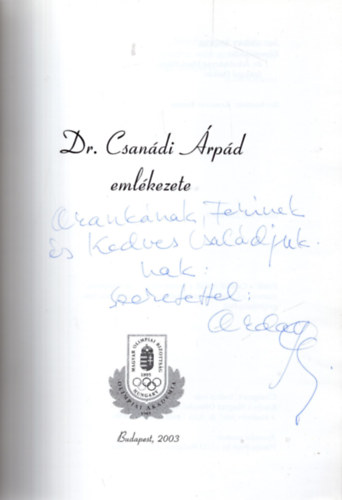 Dr. Csanádi Árpád
emlékezete
Arankának, Ferinek
és Kedves Családjuk
nak:
szeretettel:
MAGYAR OLIMPIAI BIZOTTSÁG
1895
HUNGARY
OLIMPIAI AKADÉMIA
Budapest, 2003